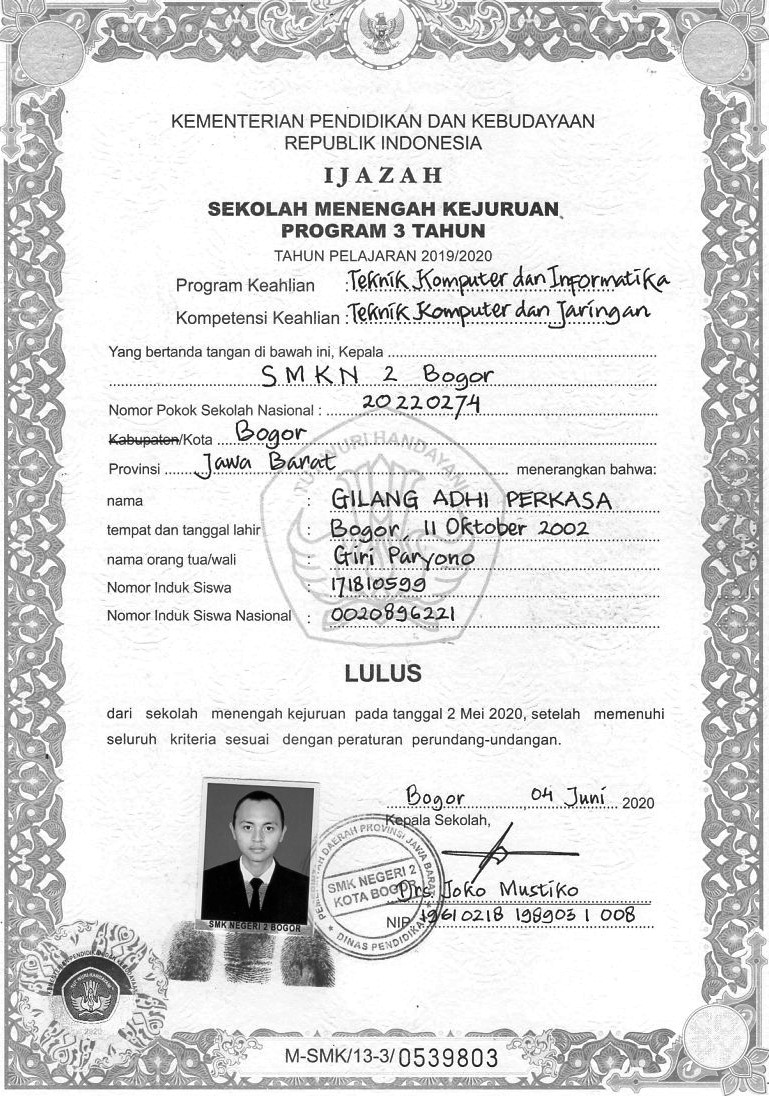 KEMENTERIAN PENDIDIKAN DAN KEBUDAYAAN
REPUBLIK INDONESIA
IJAZAH
SEKOLAH MENENGAH KEJURUAN
PROGRAM 3 TAHUN
TAHUN PELAJARAN 2019/2020
Program Keahlian : Teknik Komputer dan Informatika
Kompetensi Keahlian : Teknik Komputer dan Jaringan
Yang bertanda tangan di bawah ini, Kepala
SMKN 2 Bogor
Nomor Pokok Sekolah Nasional : 20220274
Kabupaten/Kota Bogor
Provinsi Jawa Barat menerangkan bahwa:
nama : GILANG ADHI PERKASA
tempat dan tanggal lahir : Bogor, 11 Oktober 2002
nama orang tua/wali : Giri Paryono
Nomor Induk Siswa : 171810599
Nomor Induk Siswa Nasional : 0020896221
TUT WURI HANDAYANI
LULUS
dari sekolah menengah kejuruan pada tanggal 2 Mei 2020, setelah memenuhi
seluruh kriteria sesuai dengan peraturan perundang-undangan.
Bogor, 04 Juni 2020
Kepala Sekolah,
PEMERINTAH DAERAH PROVINSI JAWA BARAT
SMK NEGERI 2
KOTA BOGOR
DINAS PENDIDIKAN
Drs. Joko Mustiko
NIP 19610218 198903 1 008
SMK NEGERI 2 BOGOR
TUT WURI HANDAYANI
2020
M-SMK/13-3/0539803